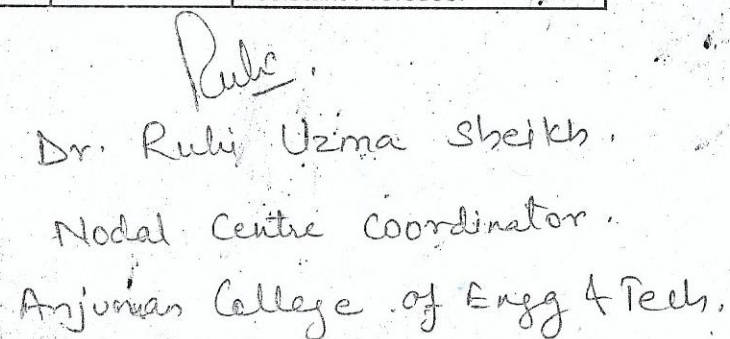 Ruhi.
Dr. Ruhi Uzma Sheikh.
Nodal Centre Coordinator.
Anjuman College of Engg & Tech.